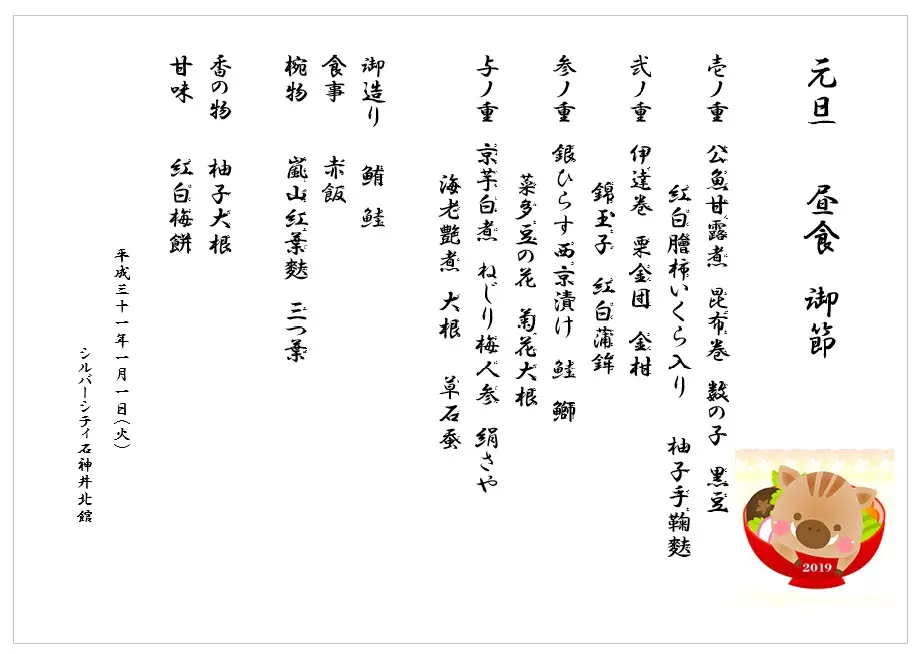 元旦 昼食 御節
壱ノ重 公魚甘露煮 昆布巻 数の子 黒豆
紅白膾柿いくら入り 柚子手鞠麩
弐ノ重 伊達巻 栗金団 金柑
錦玉子 紅白蒲鉾
参ノ重 銀ひらす西京漬け 鮭 鰤
菜多豆の花 菊花大根
与ノ重 京芋白煮 ねじり梅人参 絹さや
海老艶煮 大根 草石蚕
御造り 鮪 鮭
食事 赤飯
椀物 嵐山紅葉麩 三つ葉
香の物 柚子大根
甘味 紅白梅餅
平成三十一年一月一日(火)
シルバーシティ石神井北館
2019